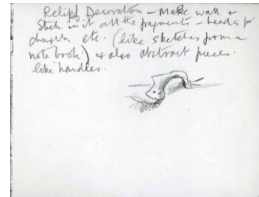 Relief Decoration - Make wall &
Stick in it all the fragments - heads for
church etc. (like sketches from a
note book) & also abstract pieces.
like handles.